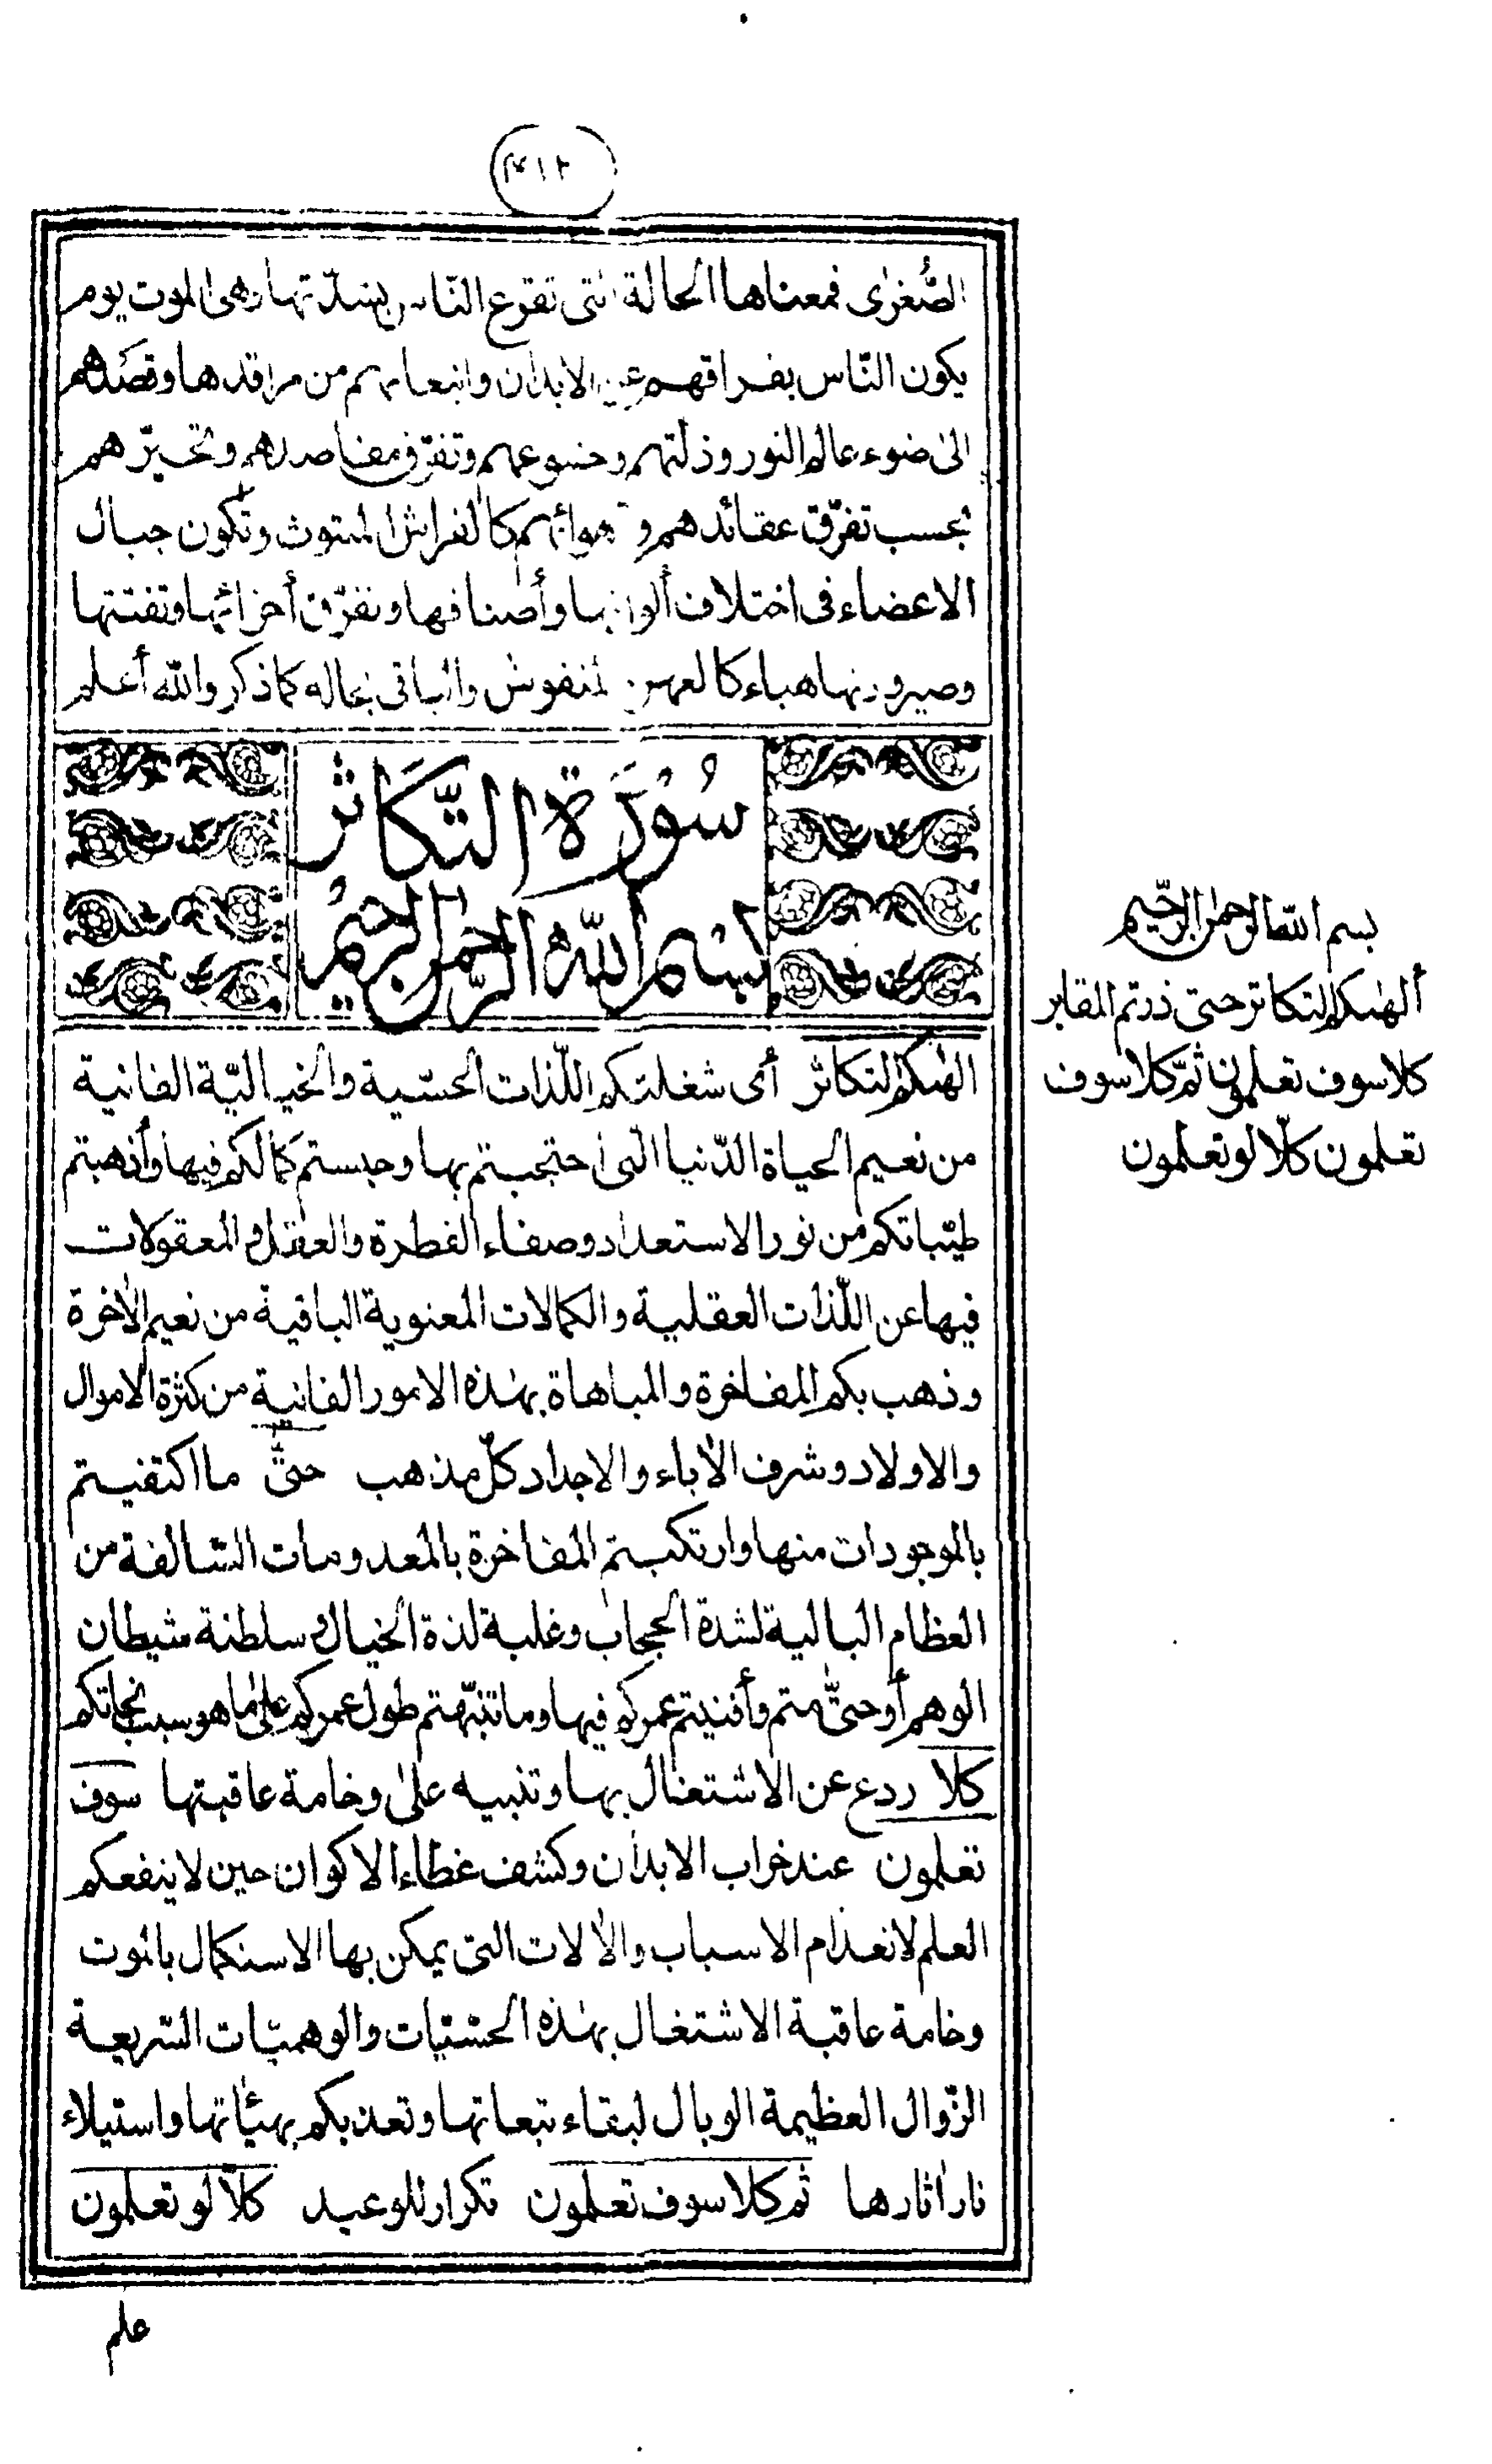 ٤١٢
الصّغرى فمعناها الحالة التى تقرع النّاس بشدّتها وهى الموت يوم
يكون النّاس بفراقهم عن الابدان وانبعاثهم من مراقدها وقصدهم
الى ضوء عالم النور وذلّتهم وخشوعهم وتفرّق مقاصدهم وتحيّرهم
بحسب تفرّق عقائدهم و هوائهم كالفراش المبثوث وتكون جبال
الاعضاء فى اختلاف ألوانها وأصنافها وتفرّق أجزائها وتفتتها
وصيرورتها هباء كالعهن المنفوش والباقى بحاله كما ذكر والله أعلم
سُورَة التَّكَاثر
بسم الله الرّحمن الرحيم
الهٰىكم التكاثر أى شغلتكم اللّذات الحسّية والخياليّة الفانية
من نعيم الحياة الدّنيا التى احتجبتم بها وحبستم كمالكم فيها وأذهبتم
طيّباتكم من نور الاستعداد وصفاء الفطرة والعقل والمعقولات
فيها عن اللّذات العقلية والكمالات المعنوية الباقية من نعيم الاٰخرة
وذهب بكم المفاخرة والمباهاة بهٰذه الامور الفانية من كثرة الاموال
والاولاد وشرف الاٰباء والاجداد كلّ مذهب حتىّ ما اكتفيتم
بالموجودات منها وارتكبتم المفاخرة بالمعدومات السّالفة من
العظام البالية لشدة الحجاب وغلبة لذة الخيال وسلطنة شيطان
الوهم أو حتىّ متم وأفنيتم عمركم فيها وما تنبّهتم طول عمركم على ما هو سبب نجاتكم
كلا ردع عن الاشتغال بها وتنبيه على وخامة عاقبتها سوف
تعلمون عند خراب الابدان وكشف غطاء الاكوان حين لا ينفعكم
العلم لانعدام الاسباب والاٰلات التى يمكن بها الاستكمال بالموت
وخامة عاقبة الاشتغال بهٰذه الحسّيّات والوهميّات السّريعة
الزّوال العظيمة الوبال لبقاء تبعاتها وتعذبكم بهيئاتها واستيلاء
نار اٰثارها ثم كلا سوف تعلمون تكرار للوعيد كلاّ لو تعلمون
علم
بسم الله الرحمٰن الرّحيم
ألهٰىكم التكاثر حتى زرتم المقابر
كلا سوف تعلمون ثمّ كلا سوف
تعلمون كلّا لو تعلمون